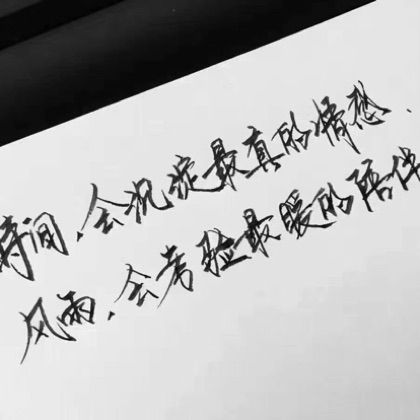 时间,会沉淀最真的情感、
风雨,会考验最暖的陪伴